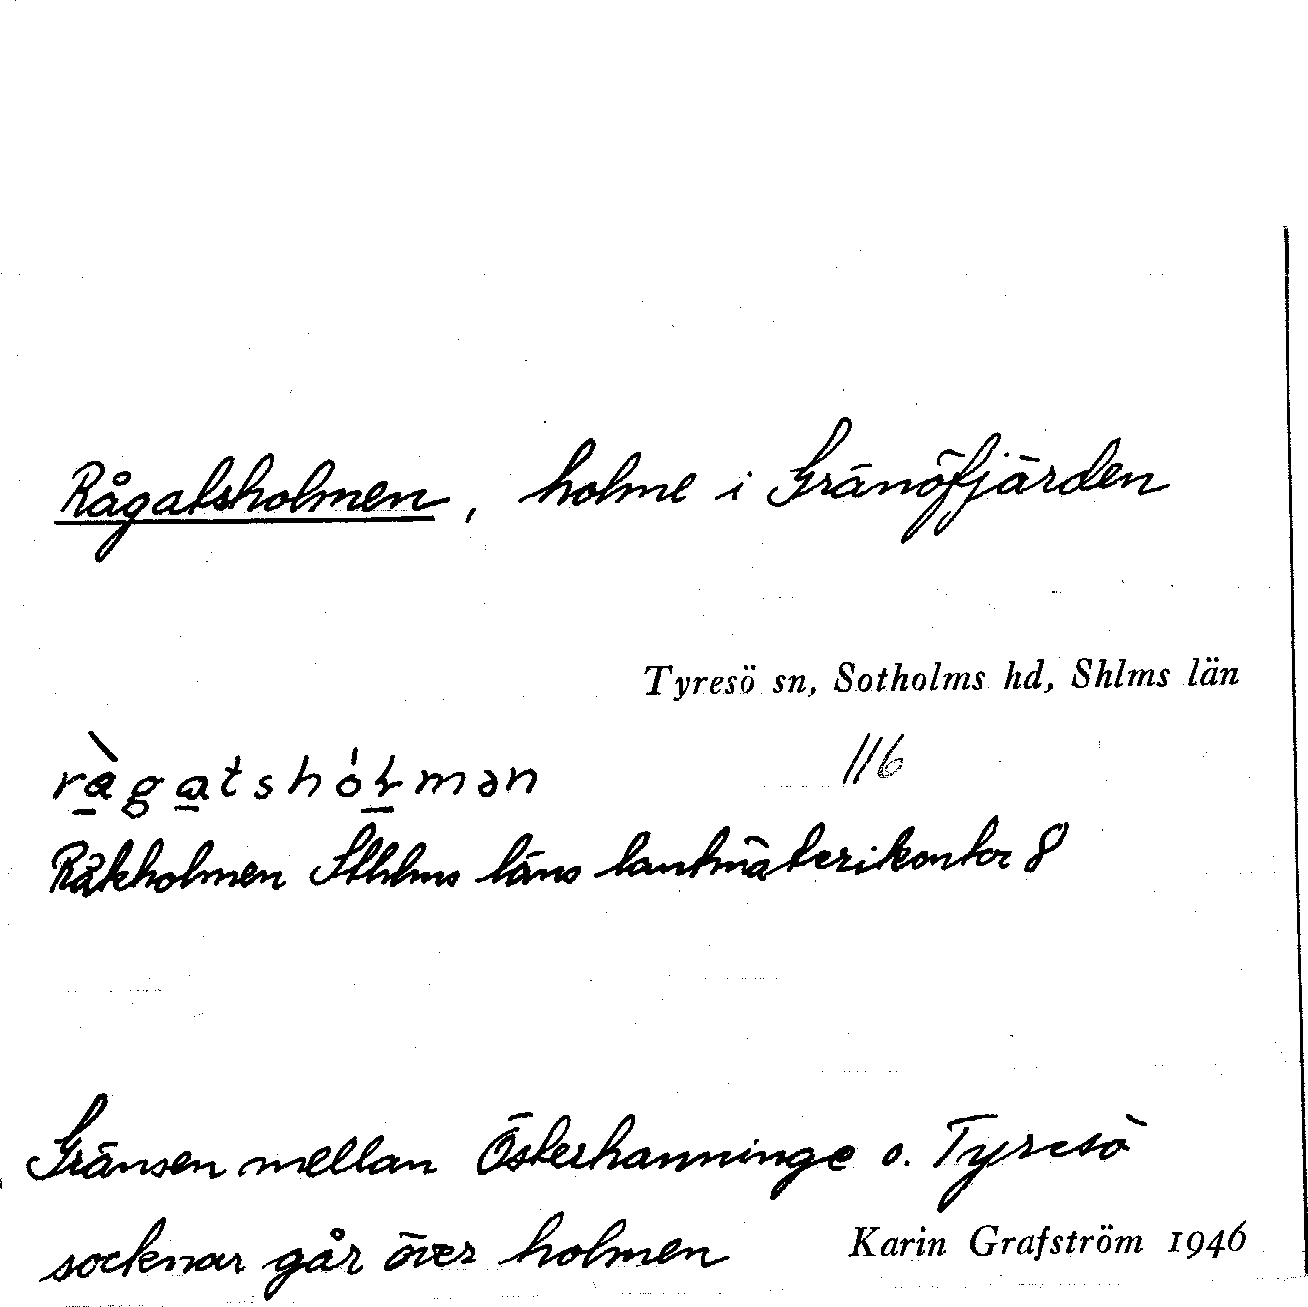 Rågatsholmen, holme i Gränöfjärden
Tyresö sn, Sotholms hd, Shlms län
116
Råkholmen Sthlms läns lantmäterikontor 8
Gränsen mellan Österhanninge o. Tyresö
socknar går över holmen
Karin Grafström 1946